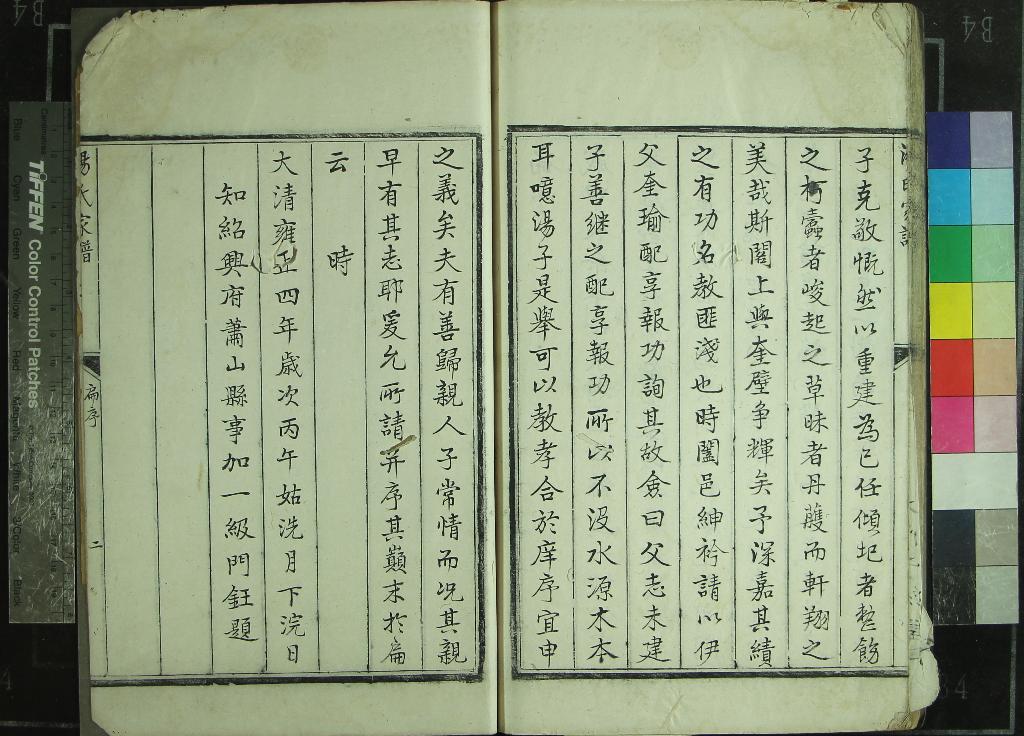 子克敬慨然以重建為己任傾圯者整飭
之朽蠹者峻起之草昧者丹雘而軒翔之
美哉斯閣上與奎壁争輝矣予深嘉其績
之有功名教匪淺也時闔邑紳衿請以伊
父奎瑜配享報功詢其故僉曰父志未建
子善继之配享報功所以不没水源木本
耳噫湯子是舉可以教孝合於庠序宜申
之義矣夫有善歸親人子常情而况其親
早有其志耶爰允所請并序其巔末於扁
云 時
大清雍正四年歲次丙午姑洗月下浣日
知紹興府蕭山縣事加一級門鈺題
湯氏家譜
扁序
二
TIFFEN Color Control Patches
Blue Cyan Green Yellow Red Magenta White 3/Color Black
B4
B4